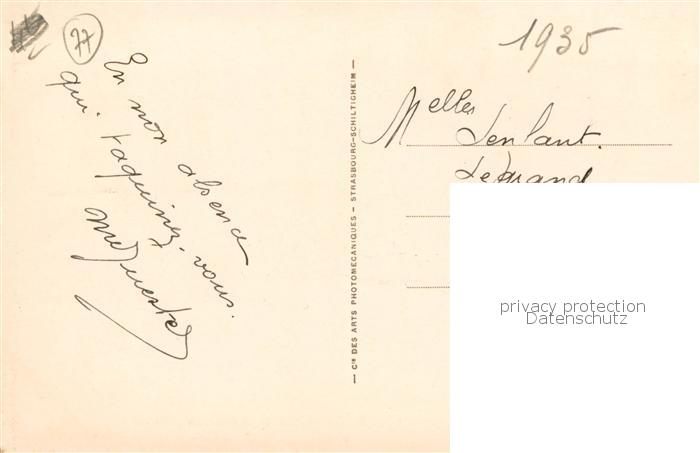 77
En mon absence
qui taquinez-vous.
1935
Melles
Legrand
— Cie DES ARTS PHOTOMECANIQUES – STRASBOURG-SCHILTIGHEIM —
privacy protection
Datenschutz